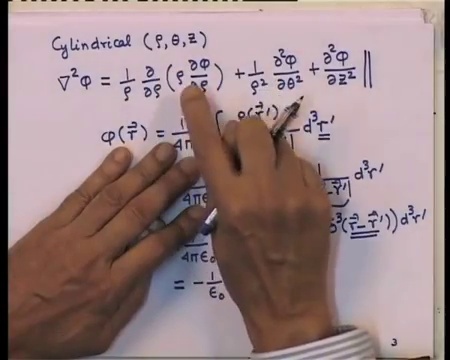 Cylindrical (ρ, θ, z)
∇²φ = 1/ρ ∂/∂ρ (ρ ∂φ/∂ρ) + 1/ρ² ∂²φ/∂θ² + ∂²φ/∂z² ||
φ(r⃗) = 1/4π ρ(r⃗') d³r⃗'
4πε r⃗'| d³r'
4πε₀ ³(r⃗ - r⃗')) d³r'
= - 1/ε₀
3